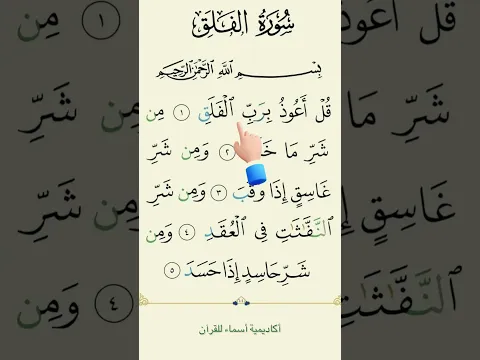 سُورَةُ الفَلَقِ
بِسْمِ اللَّهِ الرَّحْمَٰنِ الرَّحِيمِ
قُلْ أَعُوذُ بِرَبِّ الْفَلَقِ ١ مِن
شَرِّ مَا خَ ٢ وَمِن شَرِّ
غَاسِقٍ إِذَا وَقَبَ ٣ وَمِن شَرِّ
النَّفَّٰثَٰتِ فِي الْعُقَدِ ٤ وَمِن
شَرِّ حَاسِدٍ إِذَا حَسَدَ ٥
أكاديمية أسماء للقرآن